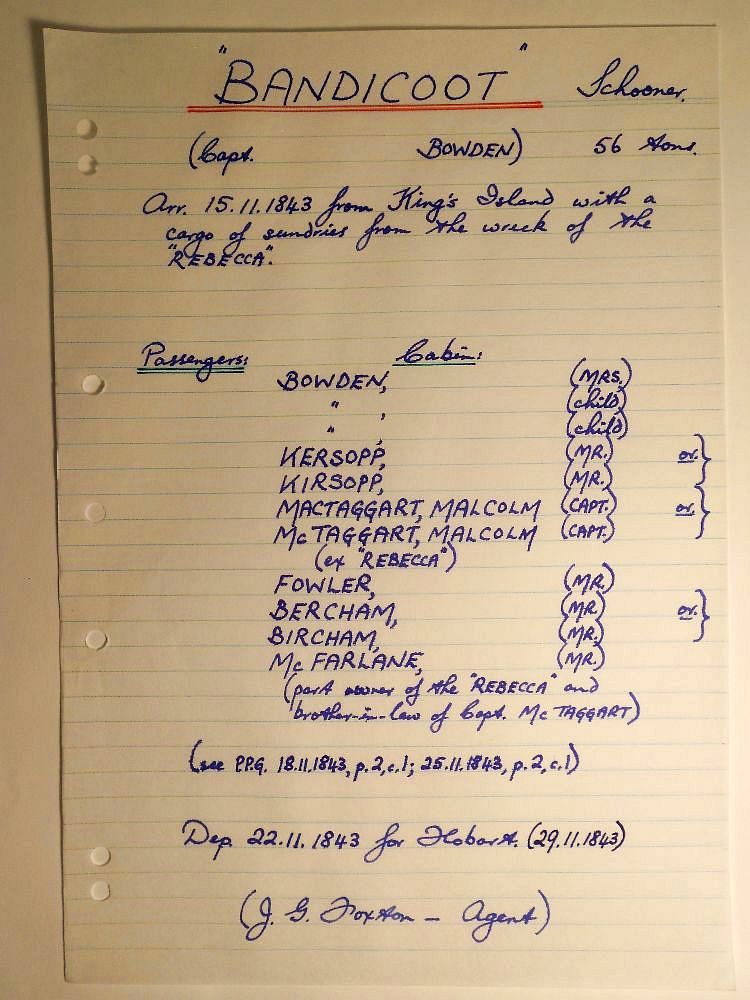 "BANDICOOT" Schooner.
(Capt. BOWDEN) 56 tons.
Arr. 15.11.1843 from King's Island with a
cargo of sundries from the wreck of the
"REBECCA".
Passengers: Cabin:
BOWDEN, (MRS.)
" , (child)
" , (child)
KERSOPP, (MR.) or }
KIRSOPP, (MR.)
MACTAGGART, MALCOLM (CAPT.) or }
McTAGGART, MALCOLM (CAPT.)
(ex "REBECCA")
FOWLER, (MR.)
BERCHAM, (MR.) or }
BIRCHAM, (MR.)
McFARLANE, (MR.)
(part owner of the "REBECCA" and
brother-in-law of Capt. McTAGGART)
(see P.P.G. 18.11.1843, p.2,c.1; 25.11.1843, p.2,c.1)
Dep. 22.11.1843 for Hobart. (29.11.1843)
(J. G. Foxton - Agent)